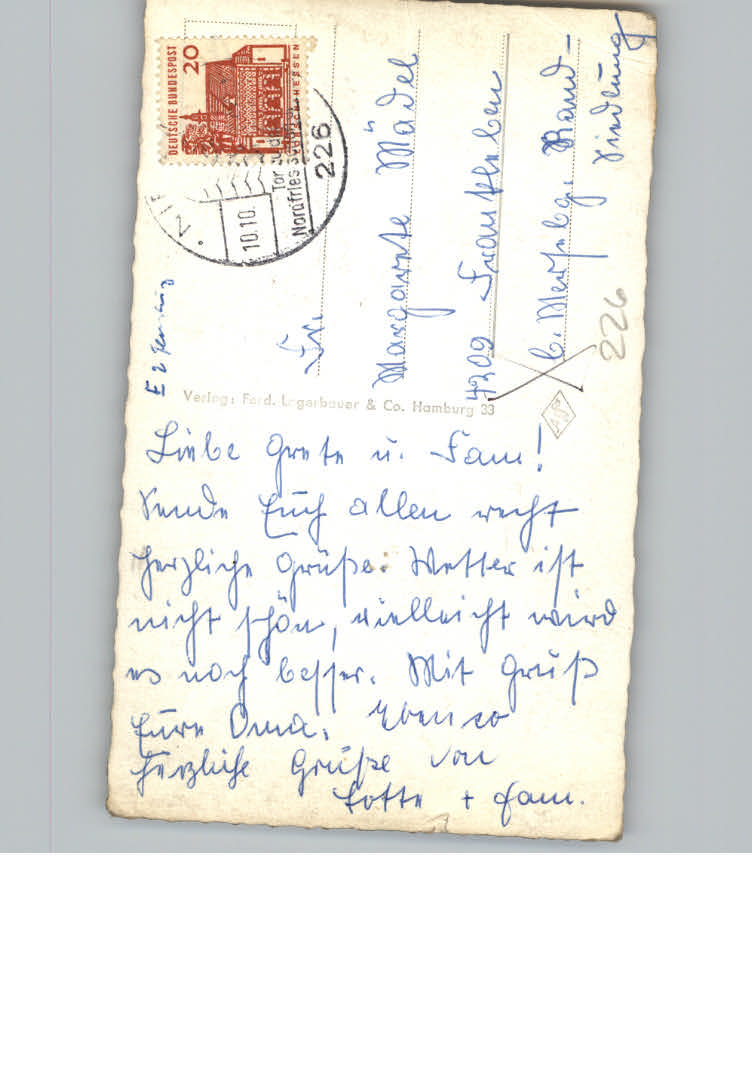 DEUTSCHE BUNDESPOST
20
HESSEN
NI
10.10.
Tor
Nordfries
226
E 2
Fr.
Margarete Mädel
4209 Frankleben
b. Mersebg. Rand-
siedlung
226
Verlag: Ferd. Lagerbauer & Co. Hamburg 33
Liebe Grete u. Fam!
Sende Euch allen recht
herzliche Grüße. Wetter ist
nicht schön, vielleicht wird
es noch besser. Mit Gruß
Eure Oma. Ebenso
herzliche Grüße von
Lotte + Fam.